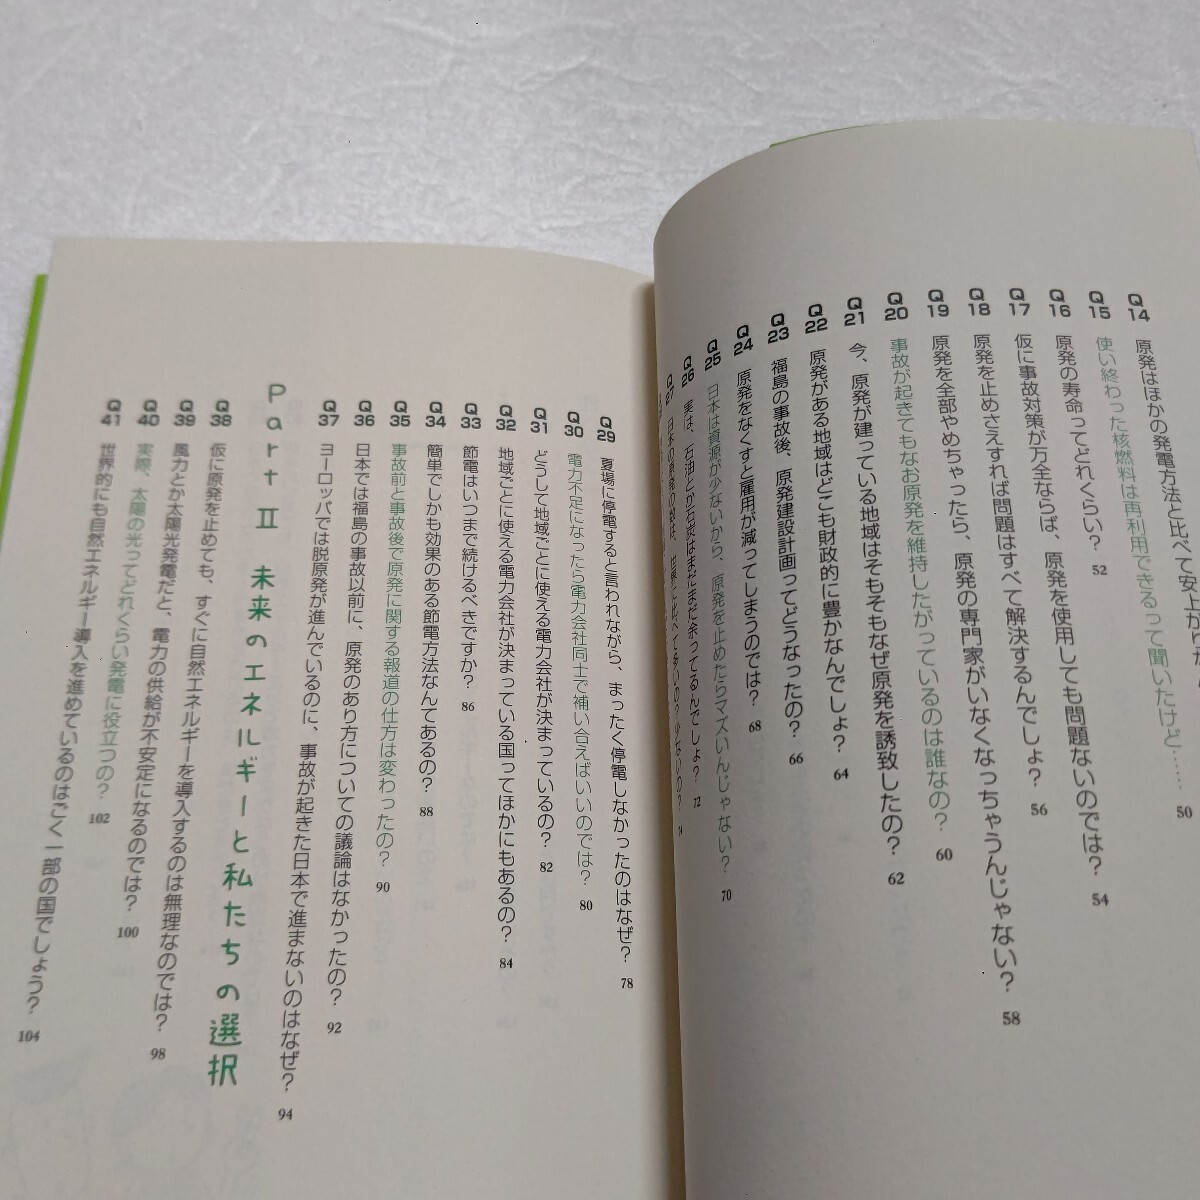 Q14 原発はほかの発電方法と比べて安上が
Q15 使い終わった核燃料は再利用できるって聞いたけど…… 50
Q16 原発の寿命ってどれくらい? 52
Q17 仮に事故対策が万全ならば、原発を使用しても問題ないのでは? 54
Q18 原発を止めさえすれば問題はすべて解決するんでしょ? 56
Q19 原発を全部やめちゃったら、原発の専門家がいなくなっちゃうんじゃない? 58
Q20 事故が起きてもなお原発を維持したがっているのは誰なの? 60
Q21 今、原発が建っている地域はそもそもなぜ原発を誘致したの? 62
Q22 原発がある地域はどこも財政的に豊かなんでしょ? 64
Q23 福島の事故後、原発建設計画ってどうなったの? 66
Q24 原発をなくすと雇用が減ってしまうのでは? 68
Q25 日本は資源が少ないから、原発を止めたらマズいんじゃない? 70
Q26 実は、石油とか石炭はまだまだ余ってるんでしょ? 72
Q27 日本の原発の数は、世界に比べて多いの?少ないの? 74
Q29 夏場に停電すると言われながら、まったく停電しなかったのはなぜ? 78
Q30 電力不足になったら電力会社同士で補い合えばいいのでは? 80
Q31 どうして地域ごとに使える電力会社が決まっているの? 82
Q32 地域ごとに使える電力会社が決まっている国ってほかにもあるの? 84
Q33 節電はいつまで続けるべきですか? 86
Q34 簡単でしかも効果のある節電方法なんてあるの? 88
Q35 事故前と事故後で原発に関する報道の仕方は変わったの? 90
Q36 日本では福島の事故以前に、原発のあり方についての議論はなかったの? 92
Q37 ヨーロッパでは脱原発が進んでいるのに、事故が起きた日本で進まないのはなぜ? 94
Part Ⅱ 未来のエネルギーと私たちの選択
Q38 仮に原発を止めても、すぐに自然エネルギーを導入するのは無理なのでは? 98
Q39 風力とか太陽光発電だと、電力の供給が不安定になるのでは? 100
Q40 実際、太陽の光ってどれくらい発電に役立つの? 102
Q41 世界的にも自然エネルギー導入を進めているのはごく一部の国でしょう? 104